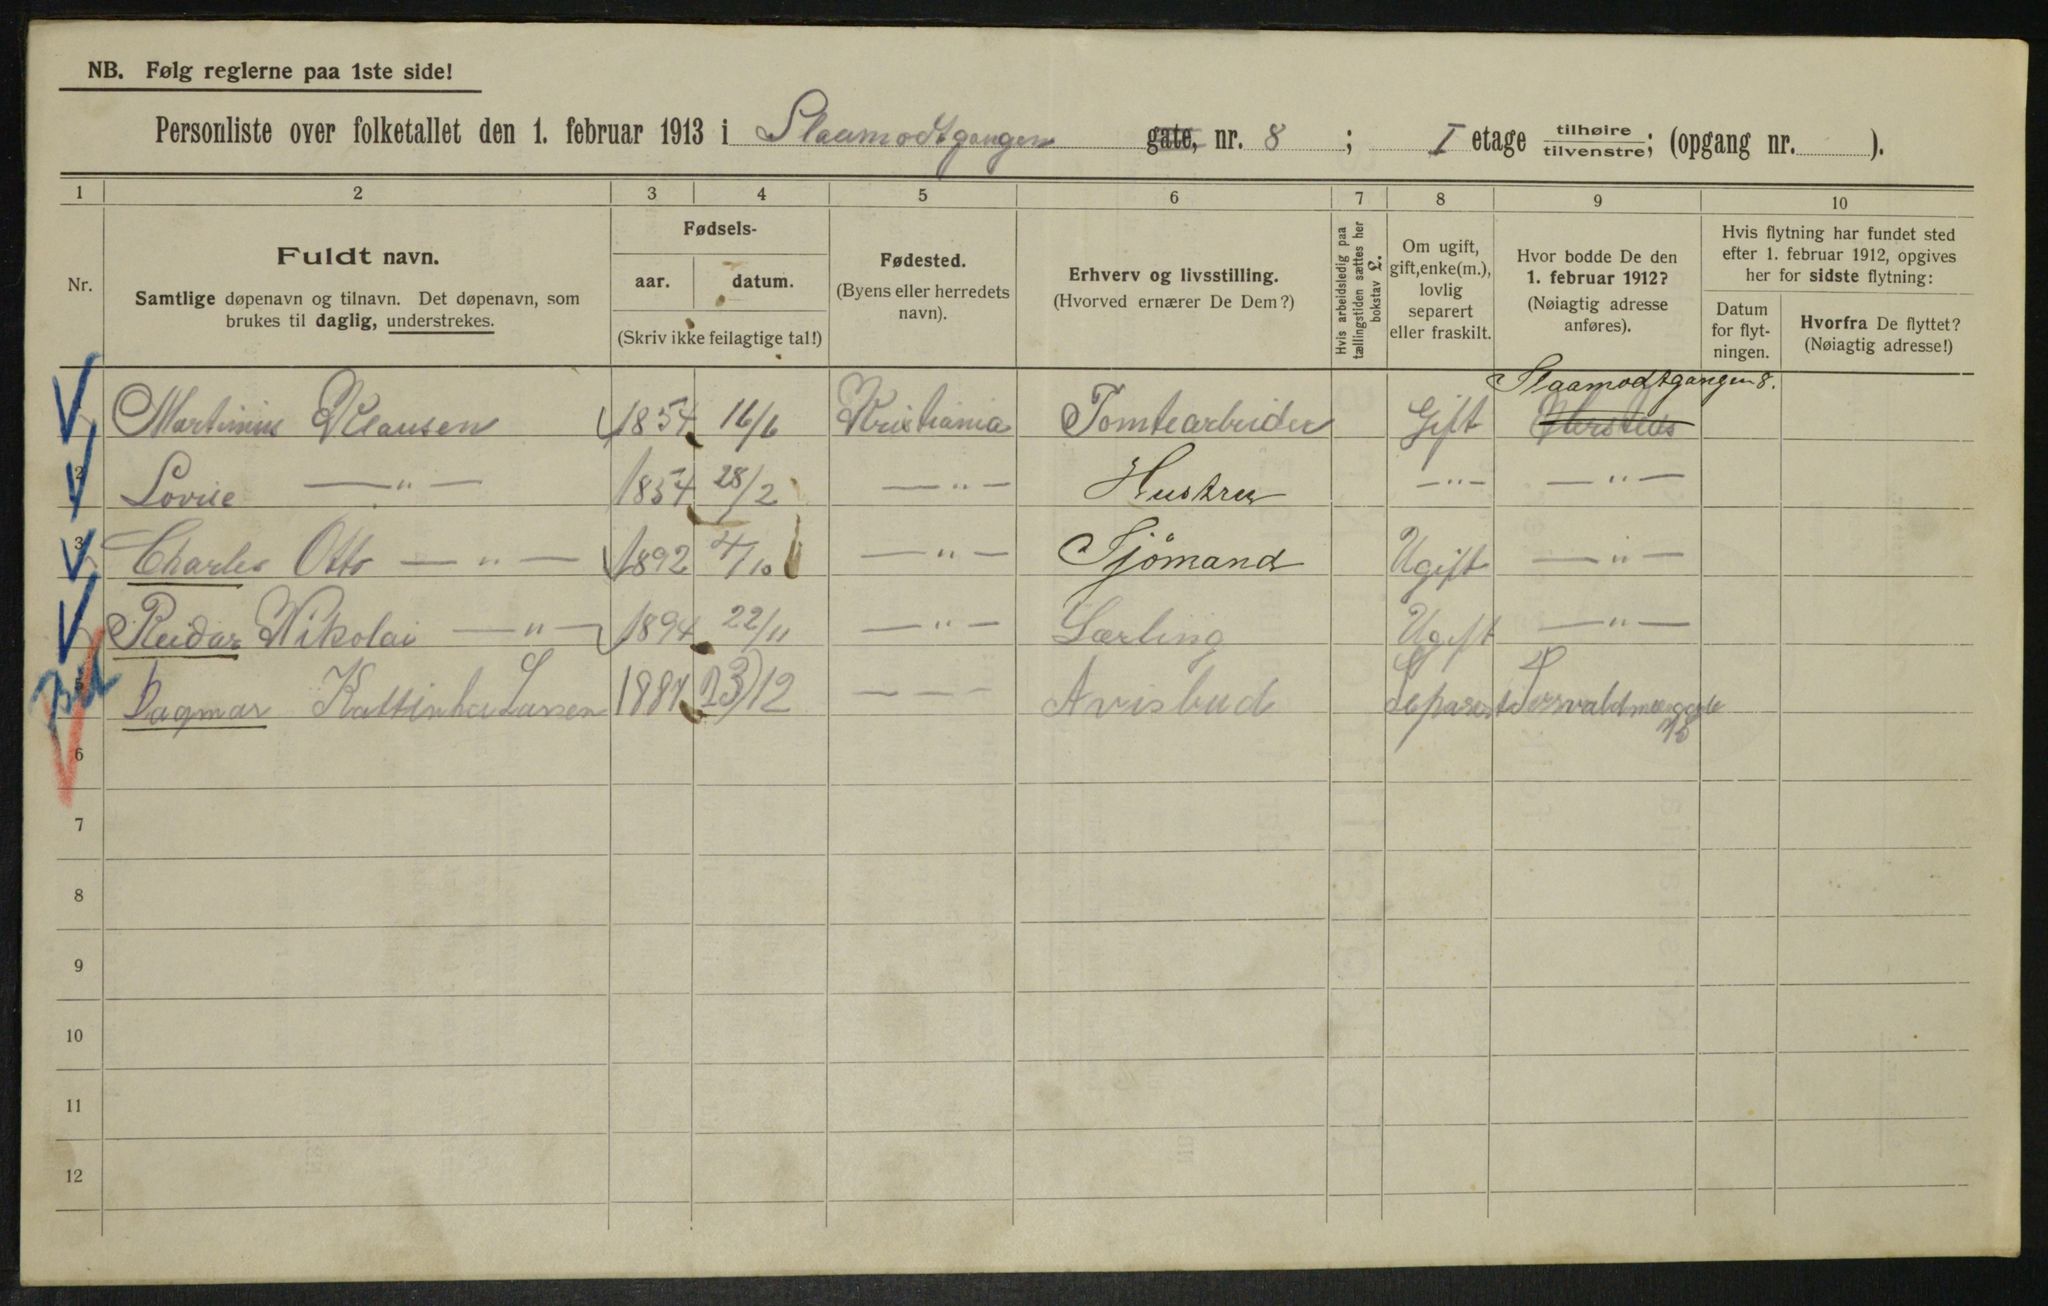 NB. Følg reglerne paa 1ste side!
Personliste over folketallet den 1. februar 1913 i Slaamodtgangen gate, nr. 8 ; I etage tilhøire tilvenstre; (opgang nr. ).
1 2 3 4 5 6 7 8 9 10
Nr.
Fuldt navn.
Samtlige døpenavn og tilnavn. Det døpenavn, som
brukes til daglig, understrekes.
Fødsels-
aar. datum.
(Skriv ikke feilagtige tal!)
Fødested.
(Byens eller herredets
navn).
Erhverv og livsstilling.
(Hvorved ernærer De Dem?)
Hvis arbeidsledig paa
tællingstiden sættes her
bokstav L.
Om ugift,
gift, enke(m.),
lovlig
separert
eller fraskilt.
Hvor bodde De den
1. februar 1912?
(Nøiagtig adresse
anføres).
Hvis flytning har fundet sted
efter 1. februar 1912, opgives
her for sidste flytning:
Datum
for flyt-
ningen.
Hvorfra De flyttet?
(Nøiagtig adresse!)
Slaamodtgangen 8.
Martinius Klausen 1854 16/6 Kristiania Tomtearbeider Gift
2 Lovise —"— 1854 28/2 —"— Hustru —"— —"—
3 Charles Otto —"— 1892 4/10 —"— Sjömand Ugift —"—
Reidar Nikolai —"— 1894 22/11 —"— Lærling Ugift —"—
5 Dagmar Larsen 1887 23/12 — — — Avisbud Separert
6
7
8
9
10
11
12